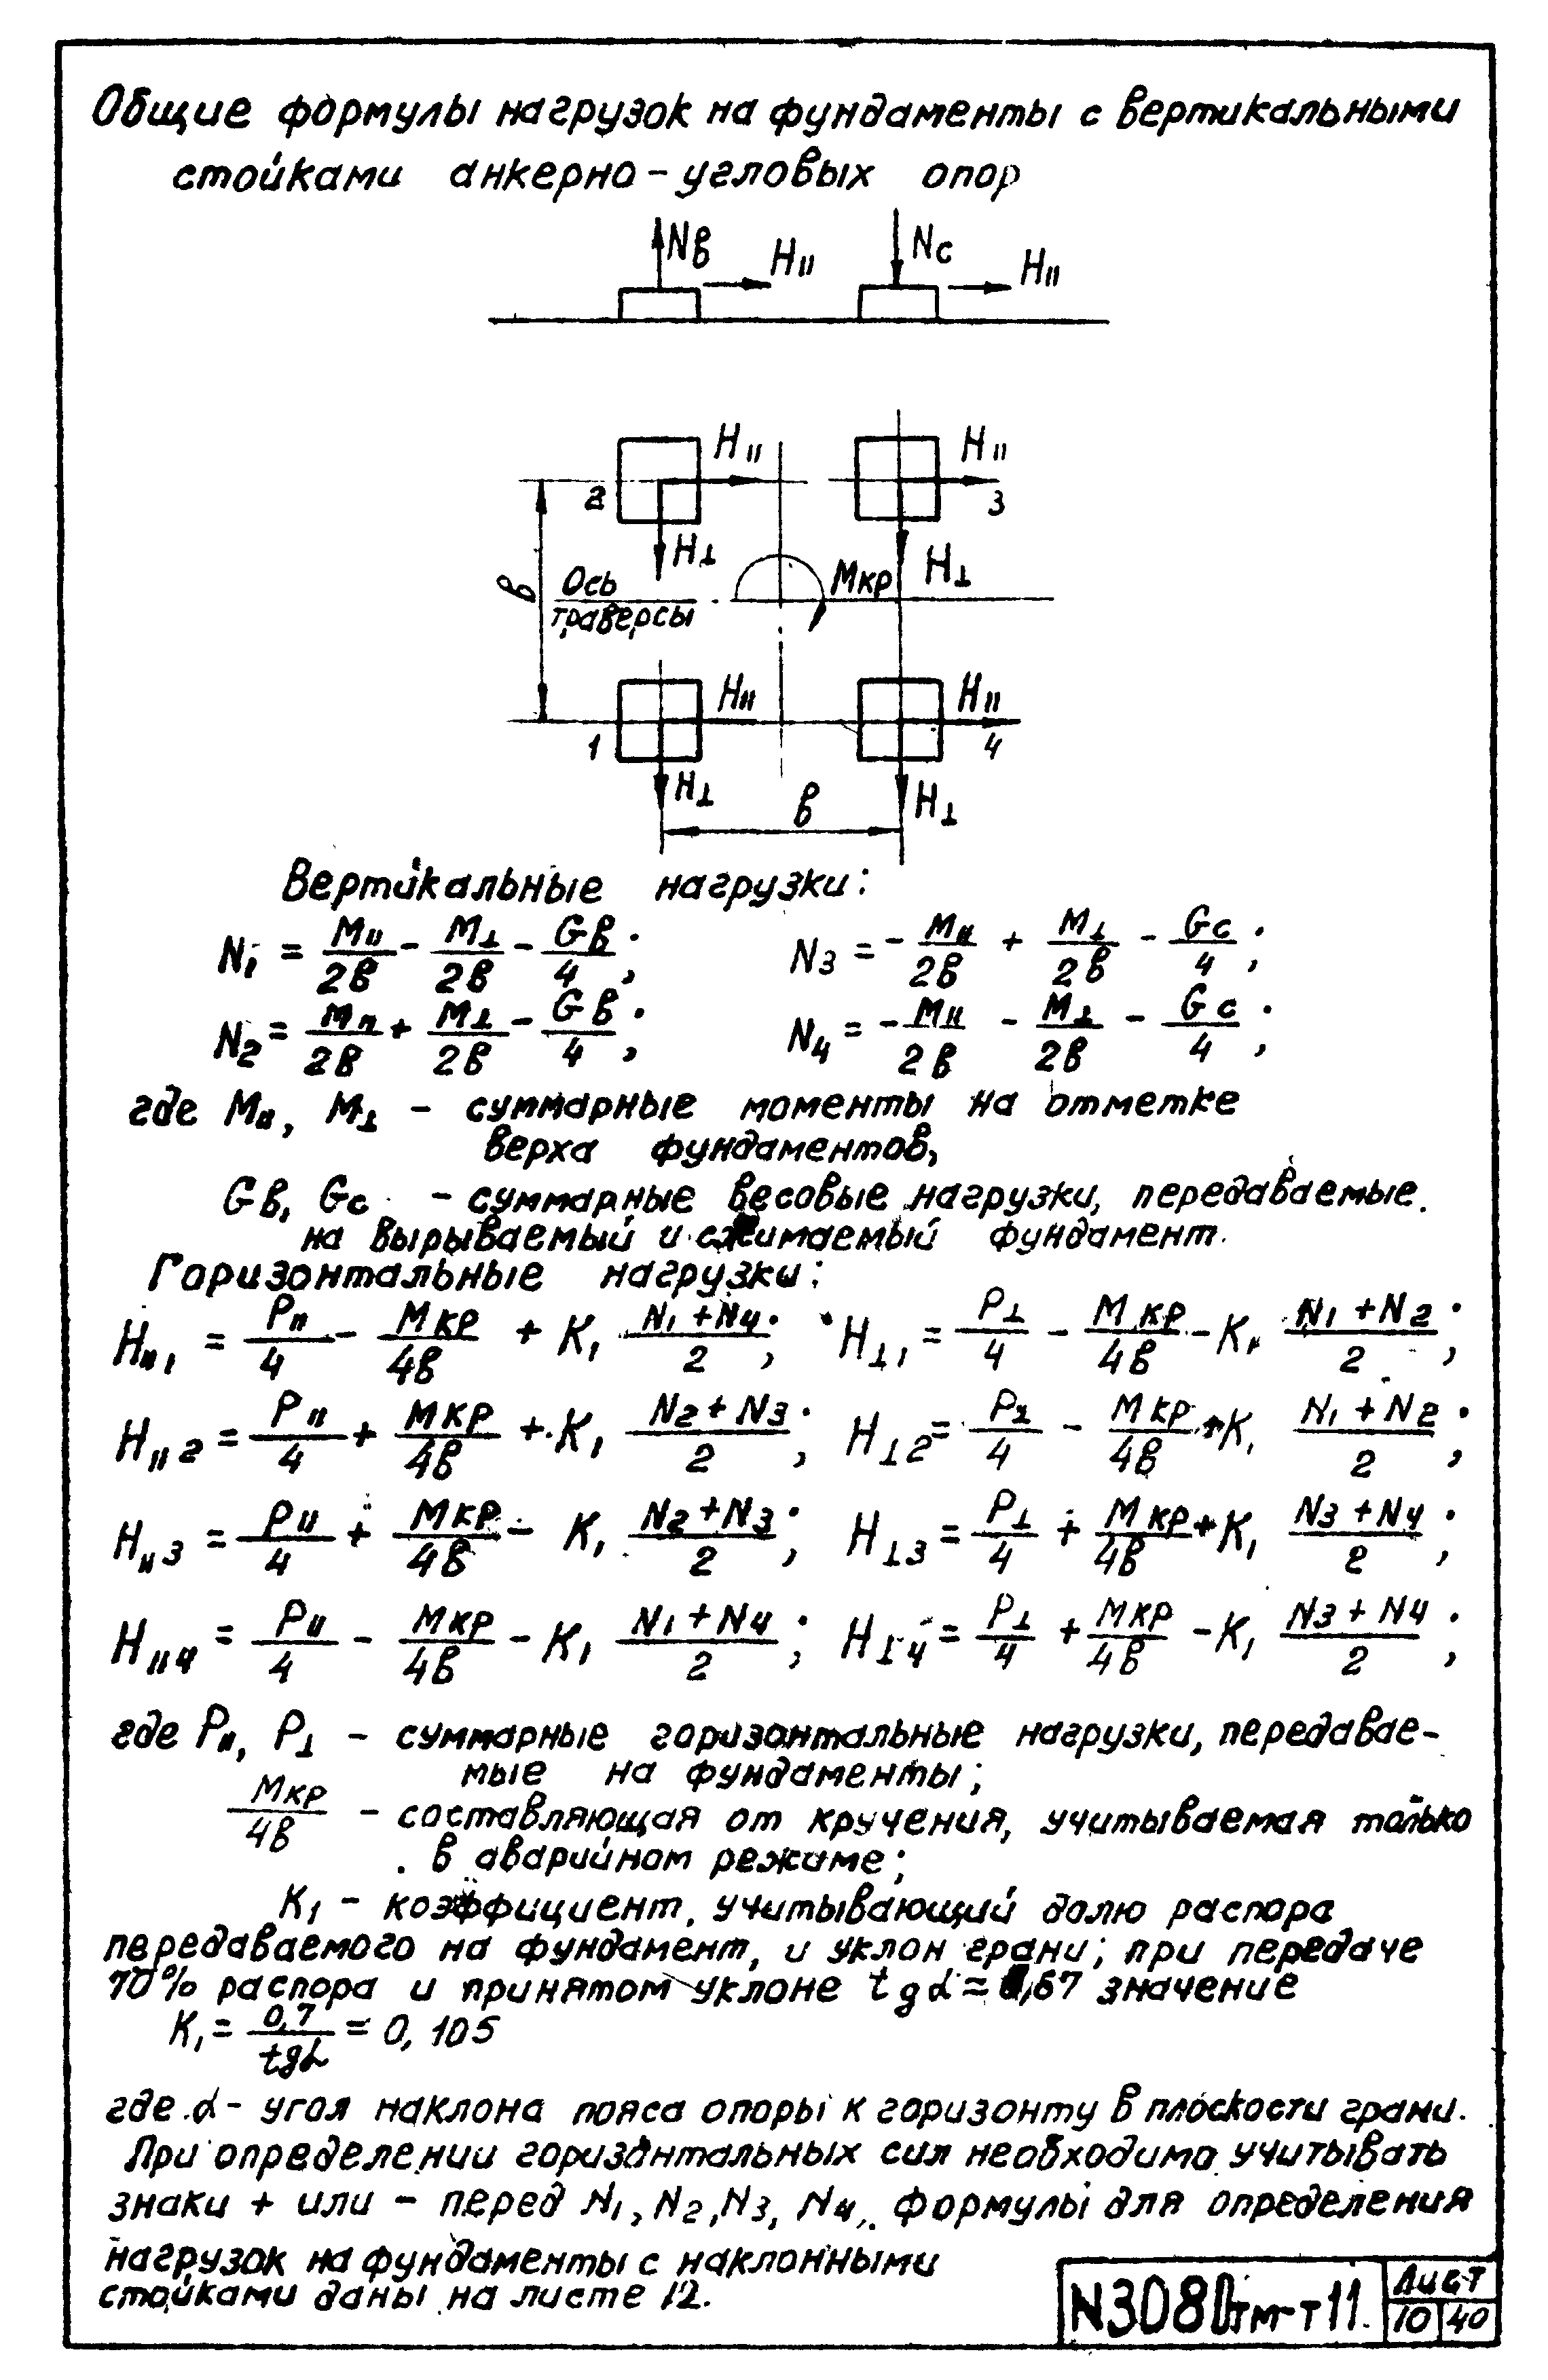 Общие формулы нагрузок на фундаменты с вертикальными
стойками анкерно-угловых опор
Nв H∥ Nс H∥
H∥ H∥
2 3
H⊥ H⊥
в Ось Мкр
траверсы
H∥ H∥
1 4
H⊥ H⊥
в
Вертикальные нагрузки:
N1 = М∥/2в - М⊥/2в - Gв/4; N3 = - М∥/2в + М⊥/2в - Gс/4;
N2 = М∥/2в + М⊥/2в - Gв/4; N4 = - М∥/2в - М⊥/2в - Gс/4;
где М∥, М⊥ - суммарные моменты на отметке
верха фундаментов,
Gв, Gс - суммарные весовые нагрузки, передаваемые
на вырываемый и сжимаемый фундамент.
Горизонтальные нагрузки:
H∥1 = P∥/4 - Мкр/4в + К1 (N1+N4)/2; H⊥1 = P⊥/4 - Мкр/4в - К1 (N1+N2)/2;
H∥2 = P∥/4 + Мкр/4в + К1 (N2+N3)/2; H⊥2 = P⊥/4 - Мкр/4в + К1 (N1+N2)/2;
H∥3 = P∥/4 + Мкр/4в - К1 (N2+N3)/2; H⊥3 = P⊥/4 + Мкр/4в + К1 (N3+N4)/2;
H∥4 = P∥/4 - Мкр/4в - К1 (N1+N4)/2; H⊥4 = P⊥/4 + Мкр/4в - К1 (N3+N4)/2;
где P∥, P⊥ - суммарные горизонтальные нагрузки, передавае-
мые на фундаменты;
Мкр/4в - составляющая от кручения, учитываемая только
в аварийном режиме;
К1 - коэффициент, учитывающий долю распора
передаваемого на фундамент, и уклон грани; при передаче
70% распора и принятом уклоне tgα = ,67 значение
К1 = 0,7/tgα = 0,105
где α - угол наклона пояса опоры к горизонту в плоскости грани.
При определении горизонтальных сил необходимо учитывать
знаки + или - перед N1, N2, N3, N4. формулы для определения
нагрузок на фундаменты с наклонными
стойками даны на листе 12.
N3080тм-т11. Лист
10 40